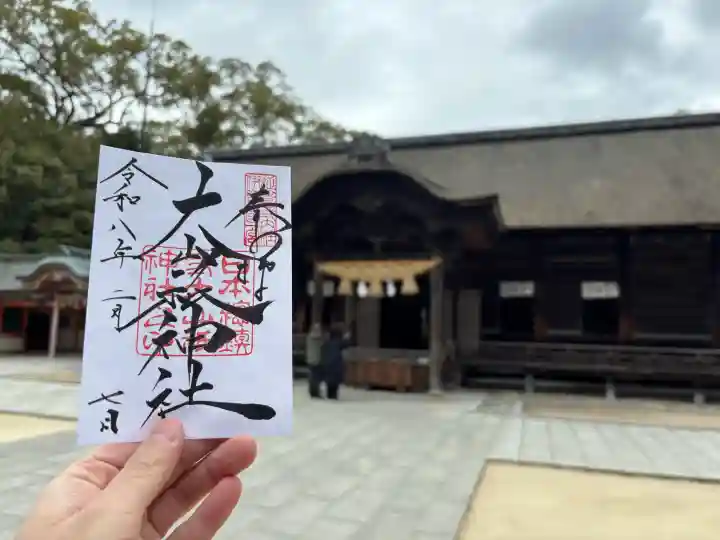 奉拝
大山祇神社
日本総鎮
守大山祇
神社之印
令和八年二月
七日